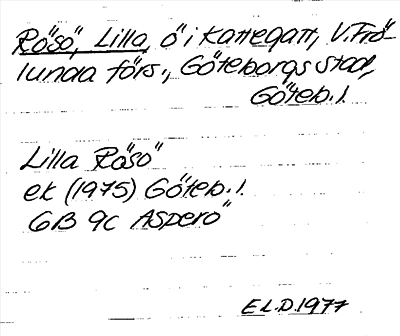 Rösö, Lilla, ö i Kattegatt, V. Frö-
lunda förs., Göteborgs stad,
Göteb. l.
Lilla Rösö
ek (1975) Göteb. l.
6B 9c Asperö
E.L.D. 1977